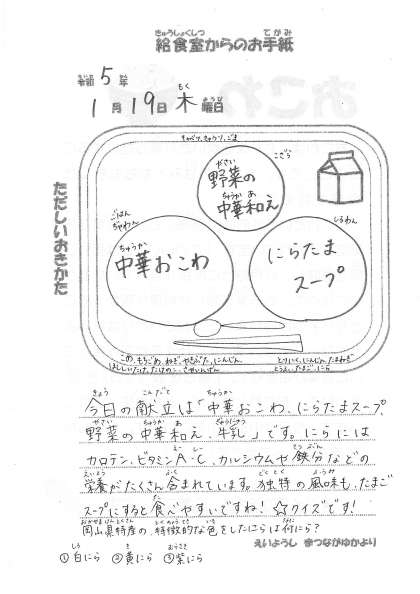 給食室からのお手紙
きゅうしょくしつ てがみ
令和5年
1月19日木曜日
ただしいおきかた
きゃべつ、きゅうり、ごま
こざら
野菜の
中華和え
ごはん
ちゃわん
中華おこわ
しるわん
にらたま
スープ
こめ、もちごめ、ねぎ、やきぶた、にんじん、
ほししいたけ、たけのこ、さやいんげん
とりにく、にんじん、たまねぎ
とうふ、たまご、にら
今日の献立は「中華おこわ、にらたまスープ、
野菜の中華和え、牛乳」です。にらには
カロテン、ビタミンA・C、カルシウムや鉄分などの
栄養がたくさん含まれています。独特の風味も、たまご
スープにすると食べやすいですね!☆クイズです!
岡山県特産の、特徴的な色をしたにらは何にら?
えいようし まつながゆかより
①白にら ②黄にら ③紫にら